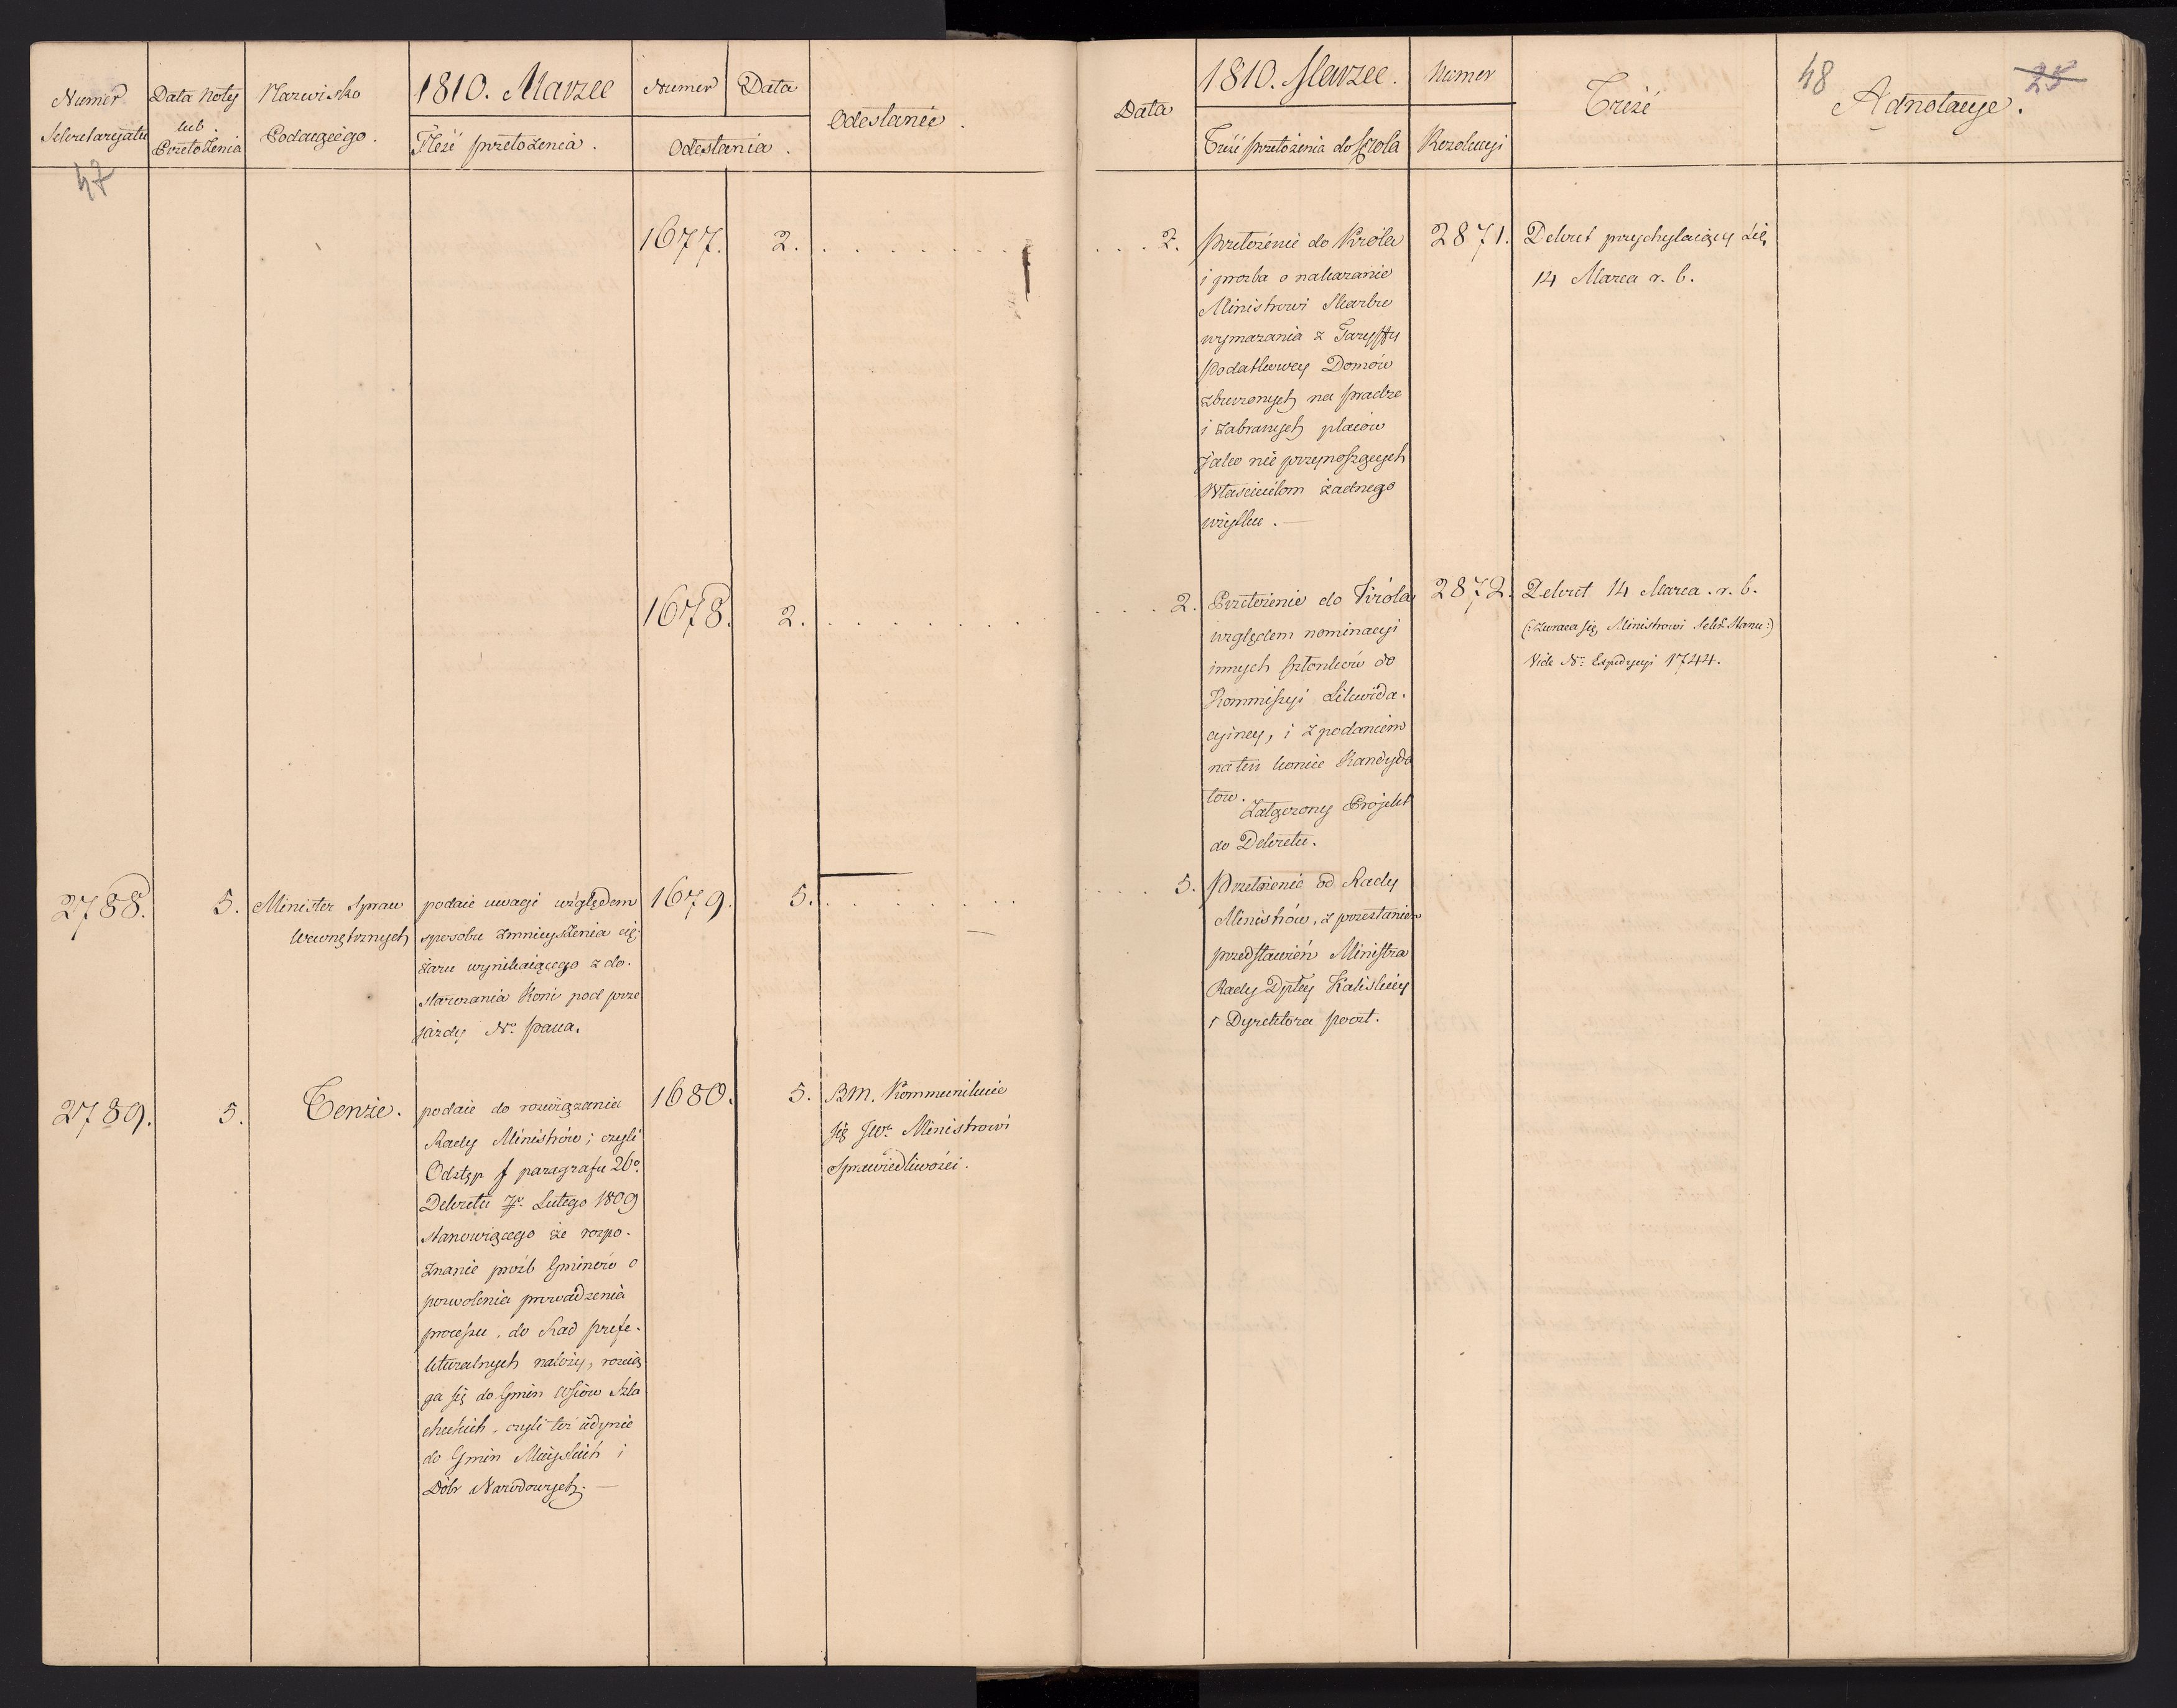 Numer
Sekretaryatu
Data Noty
lub
Przełożenia
Nazwisko
Podaiącego.
1810. Marzec
Treść przełożenia.
Numer
Data
Odesłania.
Odesłanie.
47
1677. 2. . . . . . . .
1678. 2. . . . . . . .
2788. 5. Minister Spraw
Wewnętrznych
podaie uwagi względem
sposobu zmnieyszenia cię-
żaru wynikaiącego z do-
starczania Koni pod prze
jazdy Nº. Pana.
1679. 5. . . . . . . .
2789. 5. Tenże.
podaie do rozwiązania
Rady Ministrów; czyli
Odstęp f paragrafu 26º.
Dekretu 7º. Lutego 1809
stanowiącego że rozpo-
znanie próźb Gminów o
pozwolenia prowadzenia
processu, do Rad Prefe-
kturalnych należy, rozcią
ga się do Gmin Wsiów Szla
checkich, czyli też iedynie
do Gmin Mieyskich i
Dóbr Narodowych. —
1680. 5. BM. Kommunikuie
się JWº. Ministrowi
Sprawiedliwości.
Data
1810. Marzec.
Treść przełożenia do Króla
Numer
Rezolucyi
Treść
48
25
Adnotacye.
. . . 2. Przełożenie do Króla
i prozba o nakazanie
Ministrowi Skarbu
wymazania z Taryffy
Podatkowey Domów
zburzonych na Pradze
i zabranych placów
Jako nie przynoszących
Właścicielom żadnego
użytku. —
2871. Dekret przychylaiący się,
14 Marca r. b.
. . . 2. Przełożenie do Króla
względem nominacyi
innych Członków do
Kommissyi Likwida-
cyiney, i z podaniem
na ten koniec Kandyda
tów.
Załączony Projekt
do Dekretu.
2872. Dekret 14 Marca. r. b.
(: zwraca się, Ministrowi Sekr. Stanu :)
Vide Nº. Expedycyi 1744.
. . . 5. Przełożenie od Rady
Ministrów, z przesłaniem
przedstawień Ministra
Rady Dptey Kaliskiey
i Dyrektora poczt.